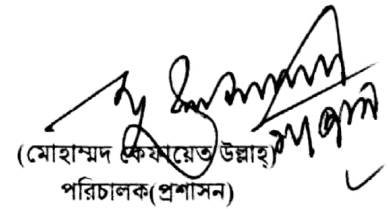 (মোহাম্মদ কেফায়েত উল্লাহ্)
পরিচালক(প্রশাসন)